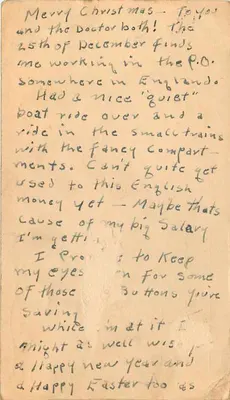 Merry Christmas - To you
and the Doctor both! The
25th of December finds
me working in the P.O.
somewhere in England.
Had a nice "quiet"
boat ride over and a
ride in the small trains
with the fancy Compart-
ments. Can't quite get
used to this English
money yet - Maybe thats
cause of my big Salary
I'm getting
I to Keep
my eyes for some
of those Buttons you're
Saving
while I'm at it I
might as well wish
a Happy new year and
a Happy Easter too as